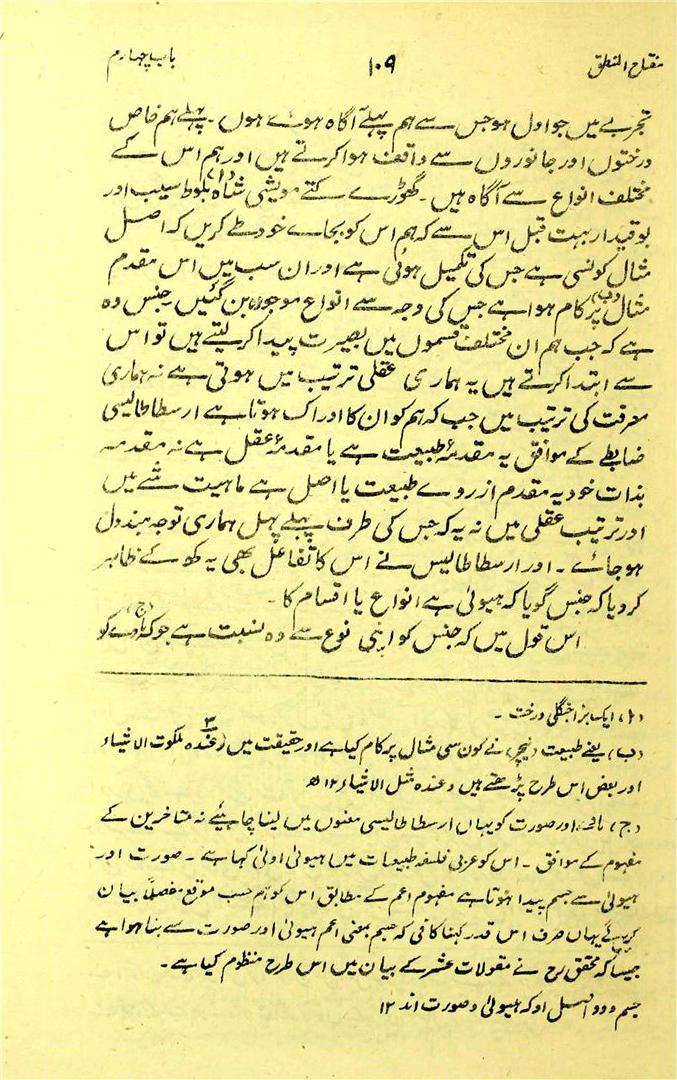 مفتاح المنطق ۱۰۹ باب چہارم
تجربے میں جو اول ہو جس سے ہم پہلے آگاہ ہوئے ہوں ۔ پہلے ہم خاص
درختوں اور جانوروں سے واقف ہوا کرتے ہیں اور ہم اس کے
مختلف انواع سے آگاہ ہیں ۔ گھوڑے کتے مویشی شاہ بلوط (ا) سیب اور
بوقیدار بہت قبل اس سے کہ ہم اس کو بجائے خود طے کریں کہ اصل
مثال کونسی ہے جس کی تکمیل ہوئی ہے اور ان سب میں اس مقدم
مثال (ب) پر کام ہوا ہے جس کی وجہ سے انواع موجودہ بن گئیں ۔ جنس وہ
ہے کہ جب ہم ان مختلف قسموں میں بصیرت پیدا کر لیتے ہیں تو اس
سے ابتدا کرتے ہیں یہ ہماری عقلی ترتیب میں ہوتی ہے نہ ہماری
معرفت کی ترتیب میں جب کہ ہم کو ان کا ادراک ہوتا ہے ارسطاطالیسی
ضابطے کے موافق یہ مقدمۂ طبیعت ہے یا مقدمۂ عقل ہے نہ مقدمہ
بذات خود یہ مقدم ازروے طبیعت یا اصل ہے ماہیت شے میں
اور ترتیب عقلی میں نہ یہ کہ جس کی طرف پہلے پہل ہماری توجہ مبذول
ہو جائے ۔ اور ارسطاطالیس نے اس کا تفاعل بھی یہ کہہ کے ظاہر
کر دیا کہ جنس گویا کہ ہیولیٰ ہے انواع یا اقسام کا ۔
اس قول میں کہ جنس کو اپنی نوع سے وہ نسبت ہے جو کہ مادے (ج) کو
(ا) ایک بڑا جنگلی درخت ۔
(ب) یعنے طبیعت (نیچر) نے کون سی مثال پر کام کیا ہے اور حقیقت میں (عندہ ملکوت الاشیاء
اور بعض اس طرح پڑھتے ہیں وعندہ مثل الاشیاء ۱۲ ھ
(ج) مادے اور صورت کو یہاں ارسطاطالیسی معنوں میں لینا چاہیئے نہ متاخرین کے
مفہوم کے موافق ۔ اس کو عربی فلسفۂ طبیعات میں ہیولیٰ اولیٰ کہا ہے ۔ صورت اور
ہیولیٰ سے جسم پیدا ہوتا ہے مفہوم اعم کے مطابق اس کو ہم حسب موقع مفصلاً بیان
کریں گے یہاں صرف اس قدر کہنا کافی کہ جسم بمعنی اعم ہیولیٰ اور صورت سے بنا ہوا ہے
جیسا کہ محقق رح نے مقولات عشر کے بیان میں اس طرح منظوم کیا ہے ۔
جسم و دو اصل او کہ ہیولیٰ و صورت اند ۱۲